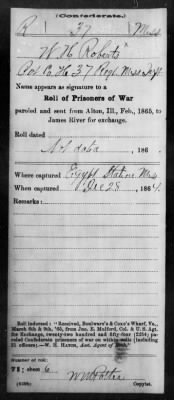 (Confederate.)
R 37 Miss
W. H. Roberts
Co. 37 Regt. Miss Inft
Name appears as signature to a
Roll of Prisoners of War
paroled and sent from Alton, Ill., Feb., 1865, to
James River for exchange.
Roll dated
No date, 186
Where captured Egypt Station Miss
When captured Dec 28, 1864.
Remarks:
Roll indorsed: "Received, Boulware's & Cox's Wharf, Va.,
March 6th & 9th, '65, from Jno. E. Mulford, Col. & U.S. Agt.
for Exchange, twenty-two hundred and fifty-four (2254) paroled
Confederate prisoners of war on within rolls (including
officers).—W. H. Hatch, Asst. Agent of Exch."
Number of roll:
; sheet 6
Copyist.